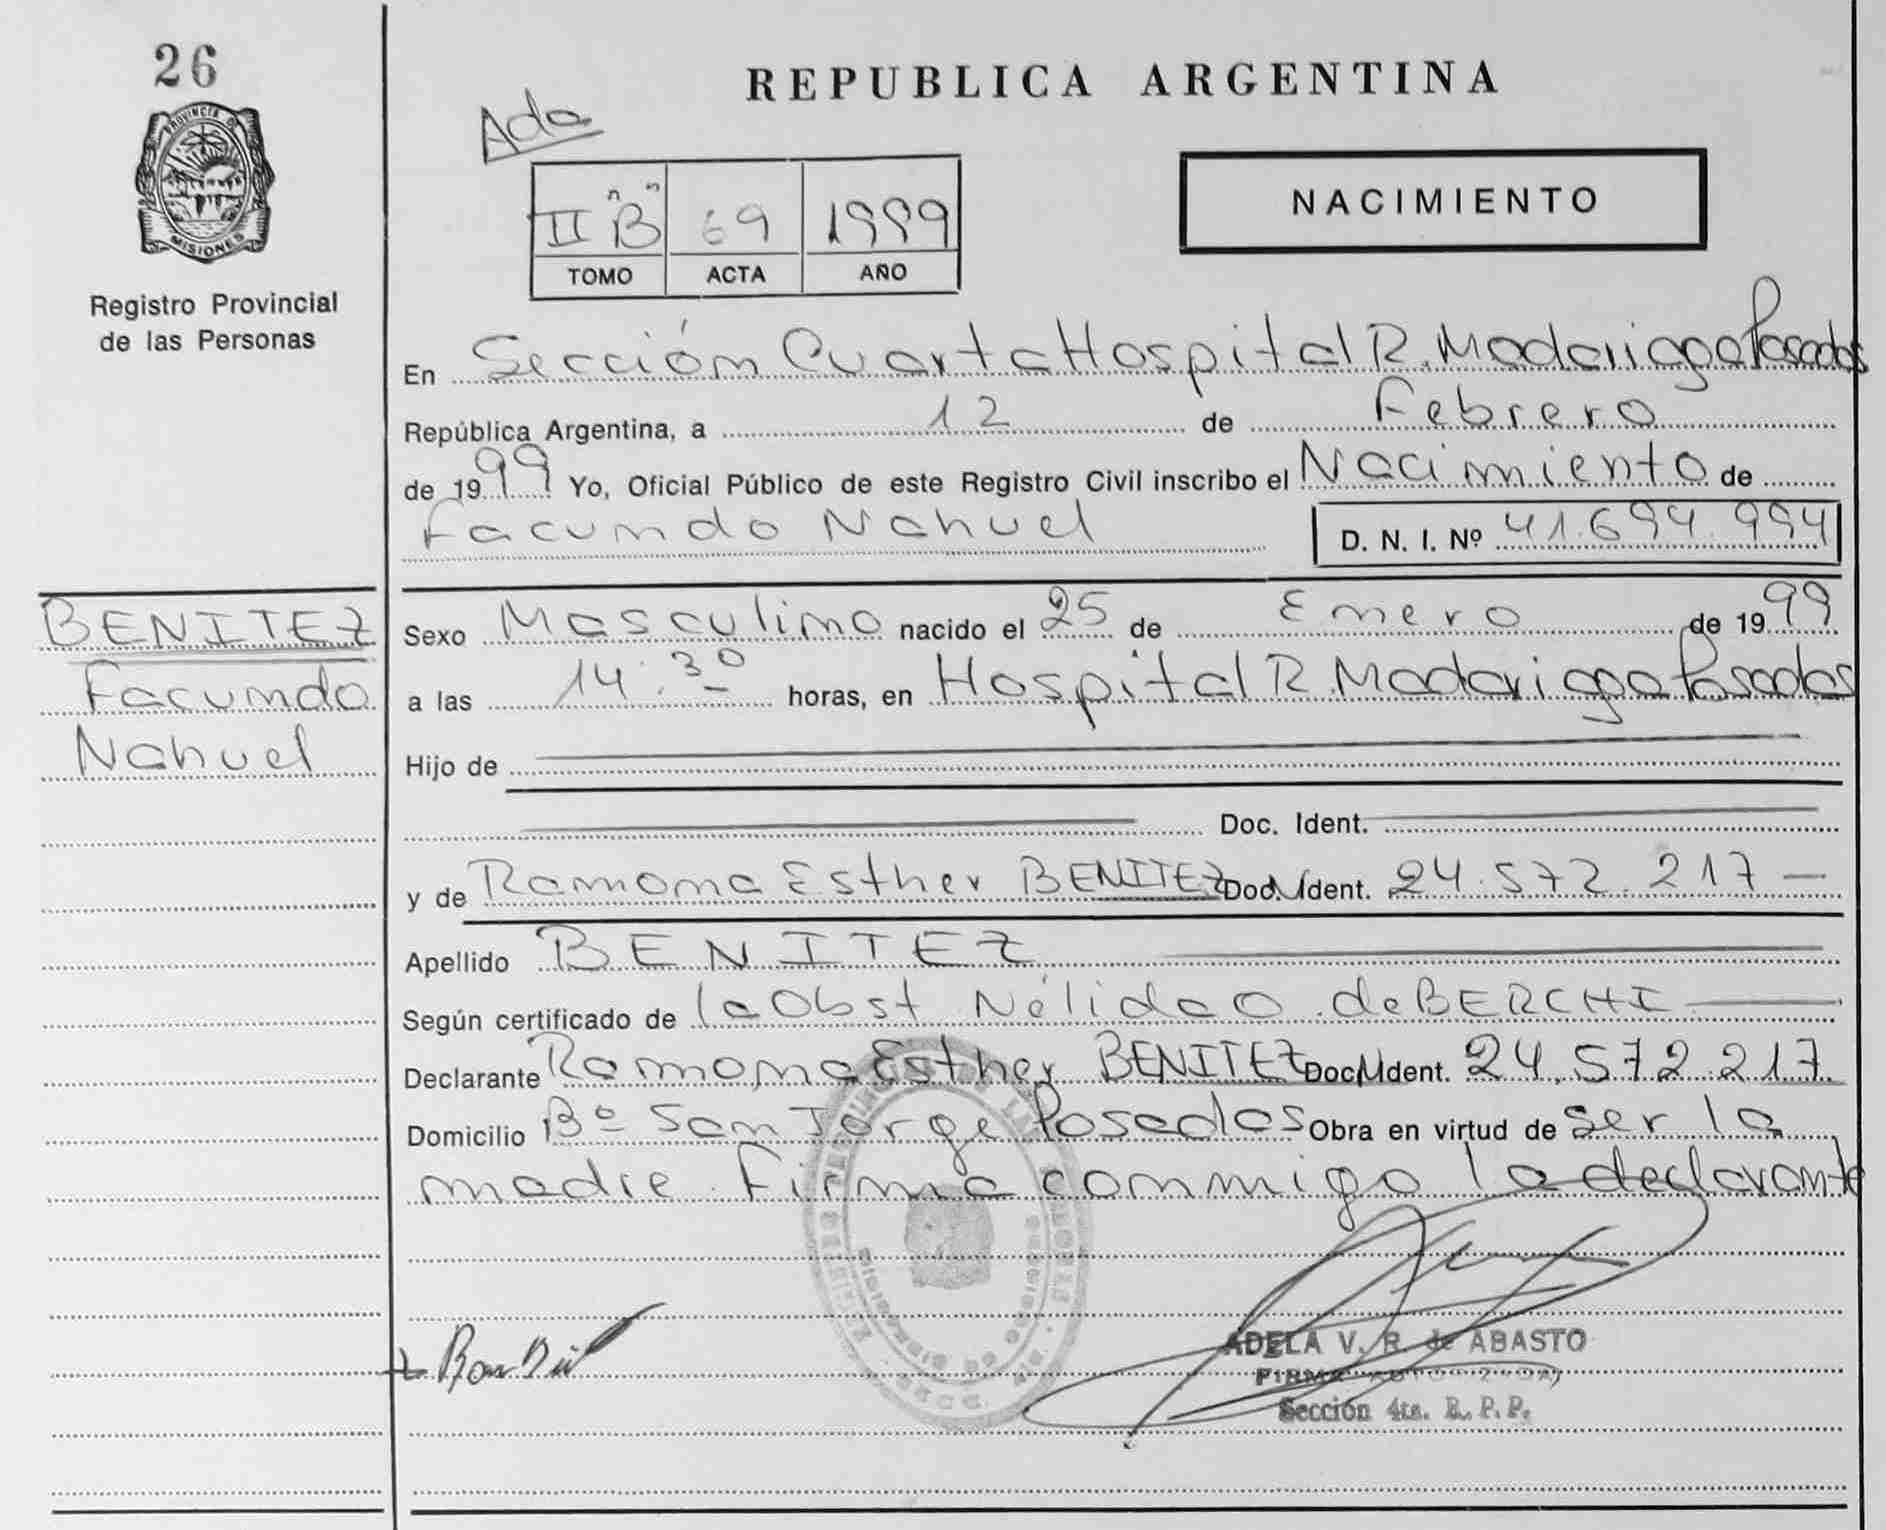 26
PROVINCIA DE
MISIONES
Registro Provincial
de las Personas
REPUBLICA ARGENTINA
Ada
NACIMIENTO
II "B" 69 1999
TOMO ACTA AÑO
En Sección Cuarta Hospital R. Madariaga Posadas
República Argentina, a 12 de Febrero
de 1999 Yo, Oficial Público de este Registro Civil inscribo el Nacimiento de
Facundo Nahuel D. N. I. Nº 41.694.994
BENITEZ
Facundo
Nahuel
Sexo Masculino nacido el 25 de Enero de 1999
a las 14:30 horas, en Hospital R. Madariaga Posadas
Hijo de
Doc. Ident.
y de Ramona Esther BENITEZ Doc. Ident. 24.572.217
Apellido BENITEZ
Según certificado de la Obst Nélida O. de BERCHI
Declarante Ramona Esther BENITEZ Doc. Ident. 24.572.217
Domicilio Bº San Jorge Posadas Obra en virtud de ser la
madre. Firma conmigo la declarante
ADELA V. R. de ABASTO
FIRMA AUTORIZADA
Sección 4ta. R. P. P.